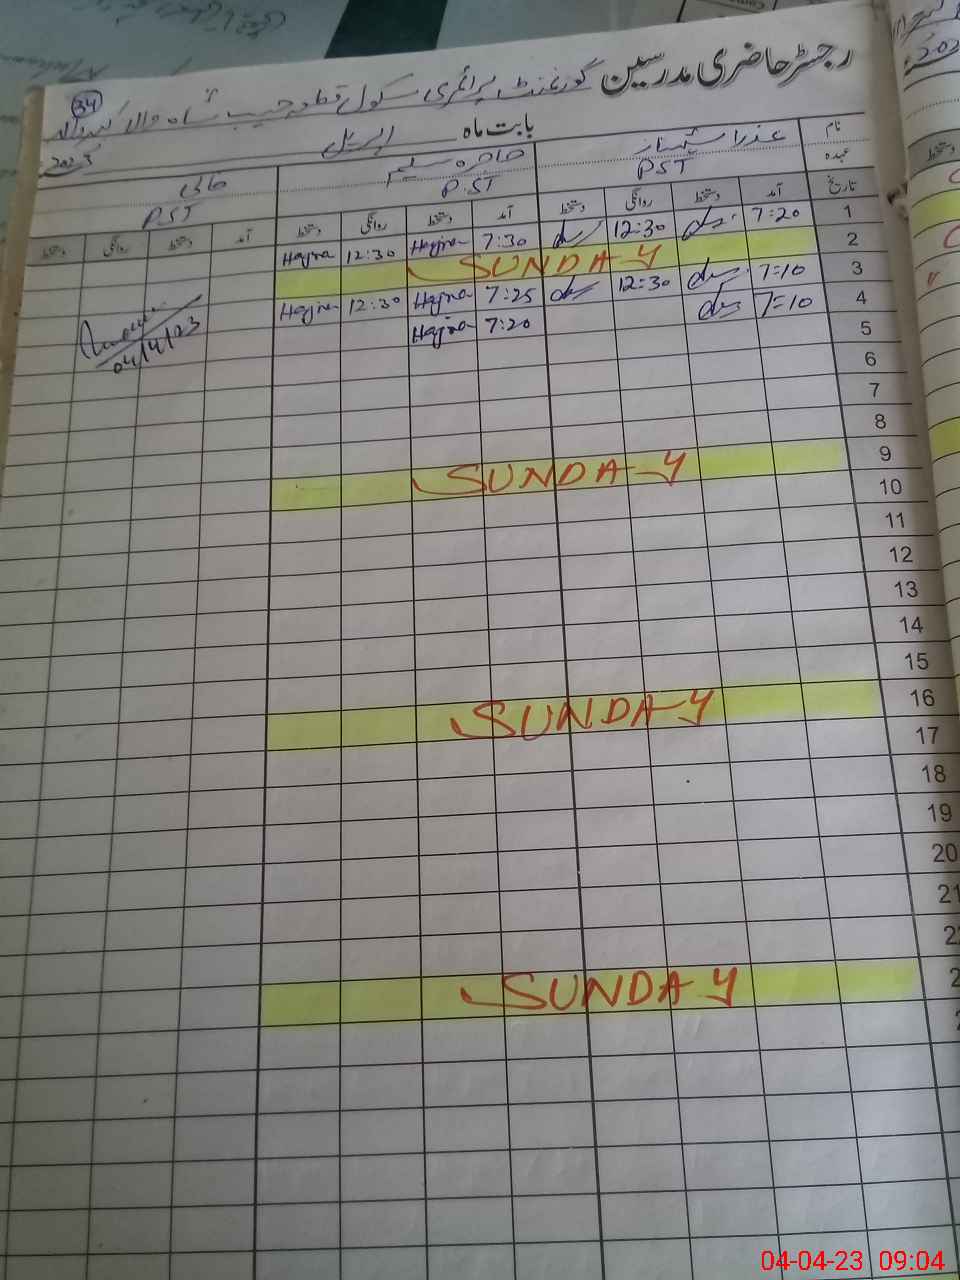 رجسٹر حاضری مدرسین گورنمنٹ پرائمری سکول قطعہ حبیب شاہ والا
34
بابت ماہ اپریل 2023
نام عذرا شہناز ہاجرہ سلیم خالی
عہدہ PST P.ST P.ST
تاریخ آمد دستخط روانگی دستخط آمد دستخط روانگی دستخط آمد دستخط روانگی دستخط
1 7:20 12:30 7:30 Hajra 12:30 Hajra
2 SUNDAY
3 7=10 12=30 7:25 Hajra 12:30 Hajra
4 7=10 7:20 Hajra
04/4/23
5
6
7
8
9 SUNDAY
10
11
12
13
14
15
16 SUNDAY
17
18
19
20
21
22
SUNDAY
04-04-23 09:04